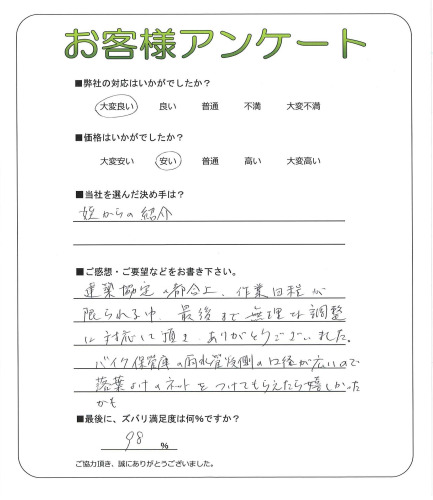 お客様アンケート
■弊社の対応はいかがでしたか?
大変良い 良い 普通 不満 大変不満
■価格はいかがでしたか?
大変安い 安い 普通 高い 大変高い
■当社を選んだ決め手は?
からの紹介
■ご感想・ご要望などをお書き下さい。
建築協定の都合上、作業日程が
限られる中、最後まで無理な調整
に対応して頂き、ありがとうございました。
バイク保管庫の雨水管 側の口径が広いので
落葉よけのネットをつけてもらえたら嬉しかった
かも
■最後に、ズバリ満足度は何%ですか?
98 %
ご協力頂き、誠にありがとうございました。